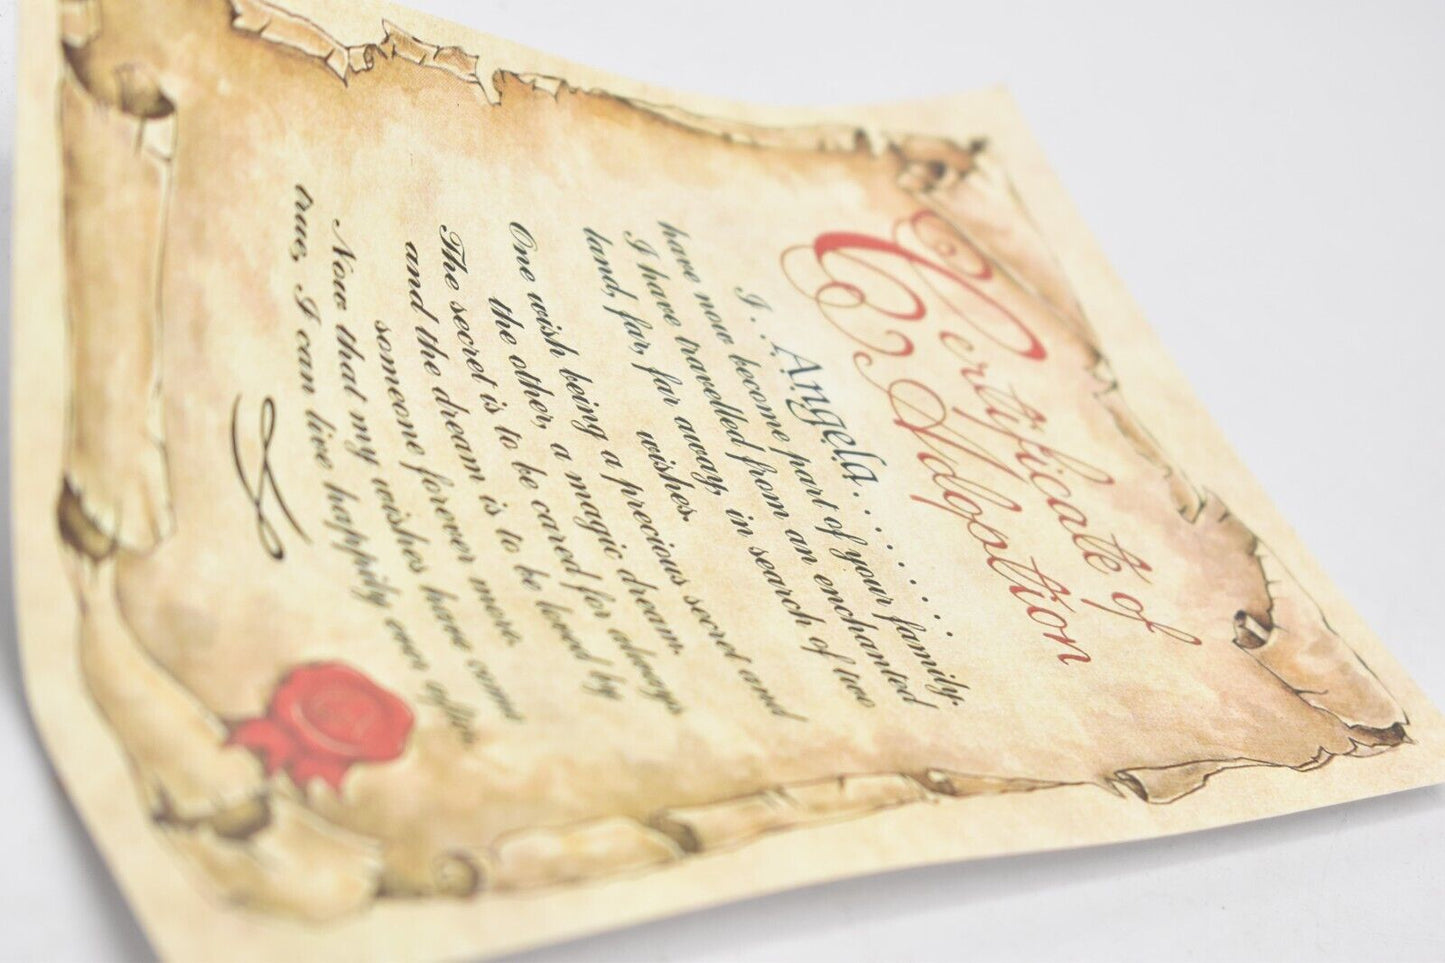 Certificate of
Adoption
I. . .Angela. . . . . . . .
have now become part of your family.
I have travelled from an enchanted
land, far, far away, in search of two
wishes.
One wish being a precious secret and
the other, a magic dream.
The secret is to be cared for always
and the dream is to be loved by
someone forever more.
Now that my wishes have come
true, I can live happily ever after